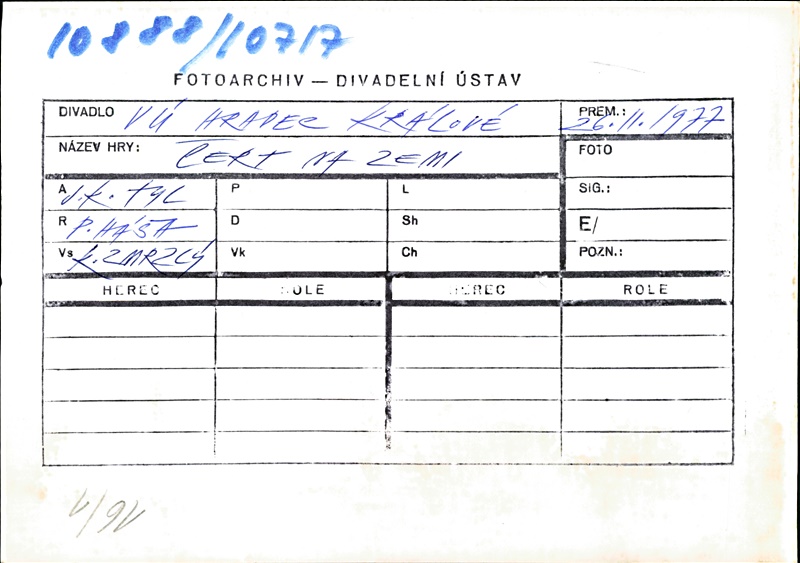 10888/10717
FOTOARCHIV — DIVADELNÍ ÚSTAV
DIVADLO VÚ HRADEC KRÁLOVÉ PREM.: 26.11.1977
NÁZEV HRY: ČERT NA ZEMI FOTO
A J.K. TYL P L SIG.:
R P. HÁŠA D Sh E/
Vs K. ZMRZLÝ Vk Ch POZN.:
HEREC ROLE HEREC ROLE
4/92